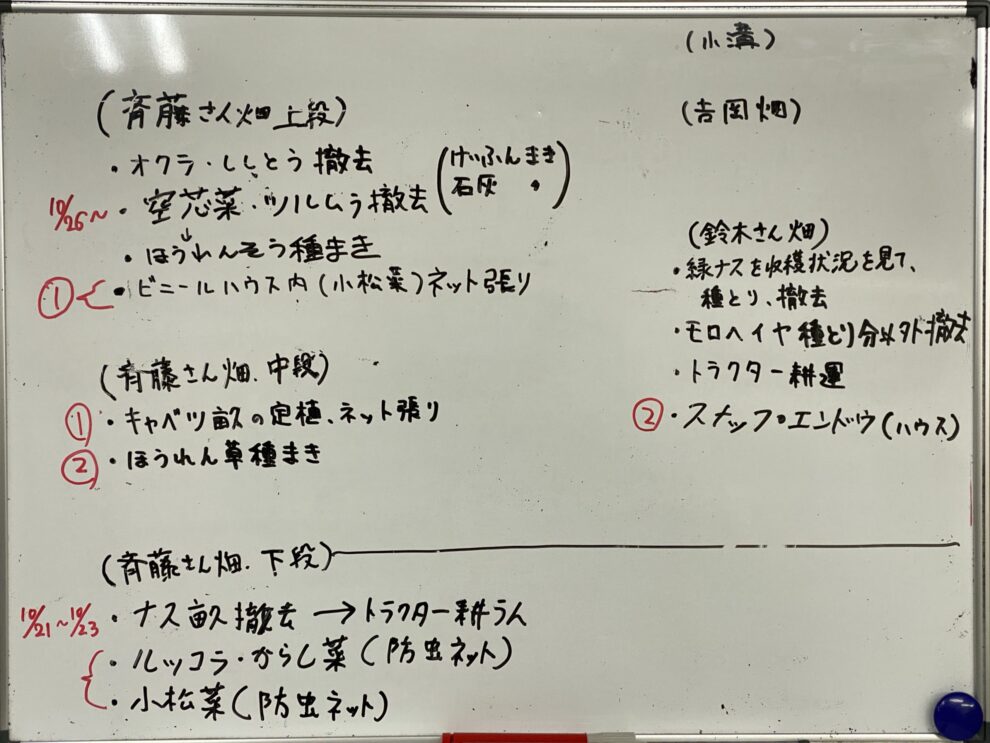 (斉藤さん畑上段)
・オクラ・ししとう撤去 (げいふんまき
石灰 〃)
10/26~ ・空芯菜・ツルムラ撤去
↓
・ほうれんそう種まき
① { ・ビニールハウス内(小松菜)ネット張り
(斉藤さん畑.中段)
① ・キャベツ畝の定植、ネット張り
② ・ほうれん草種まき
(斉藤さん畑.下段)
10/21~10/23 ・ナス畝撤去 →トラクター耕うん
{ ・ルッコラ・からし菜(防虫ネット)
・小松菜(防虫ネット)
(小溝)
(吉岡畑)
(鈴木さん畑)
・緑ナスを収穫状況を見て、
種とり、撤去
・モロヘイヤ種どり分以外撤去
・トラクター耕運
② ・スナップエンドウ(ハウス)